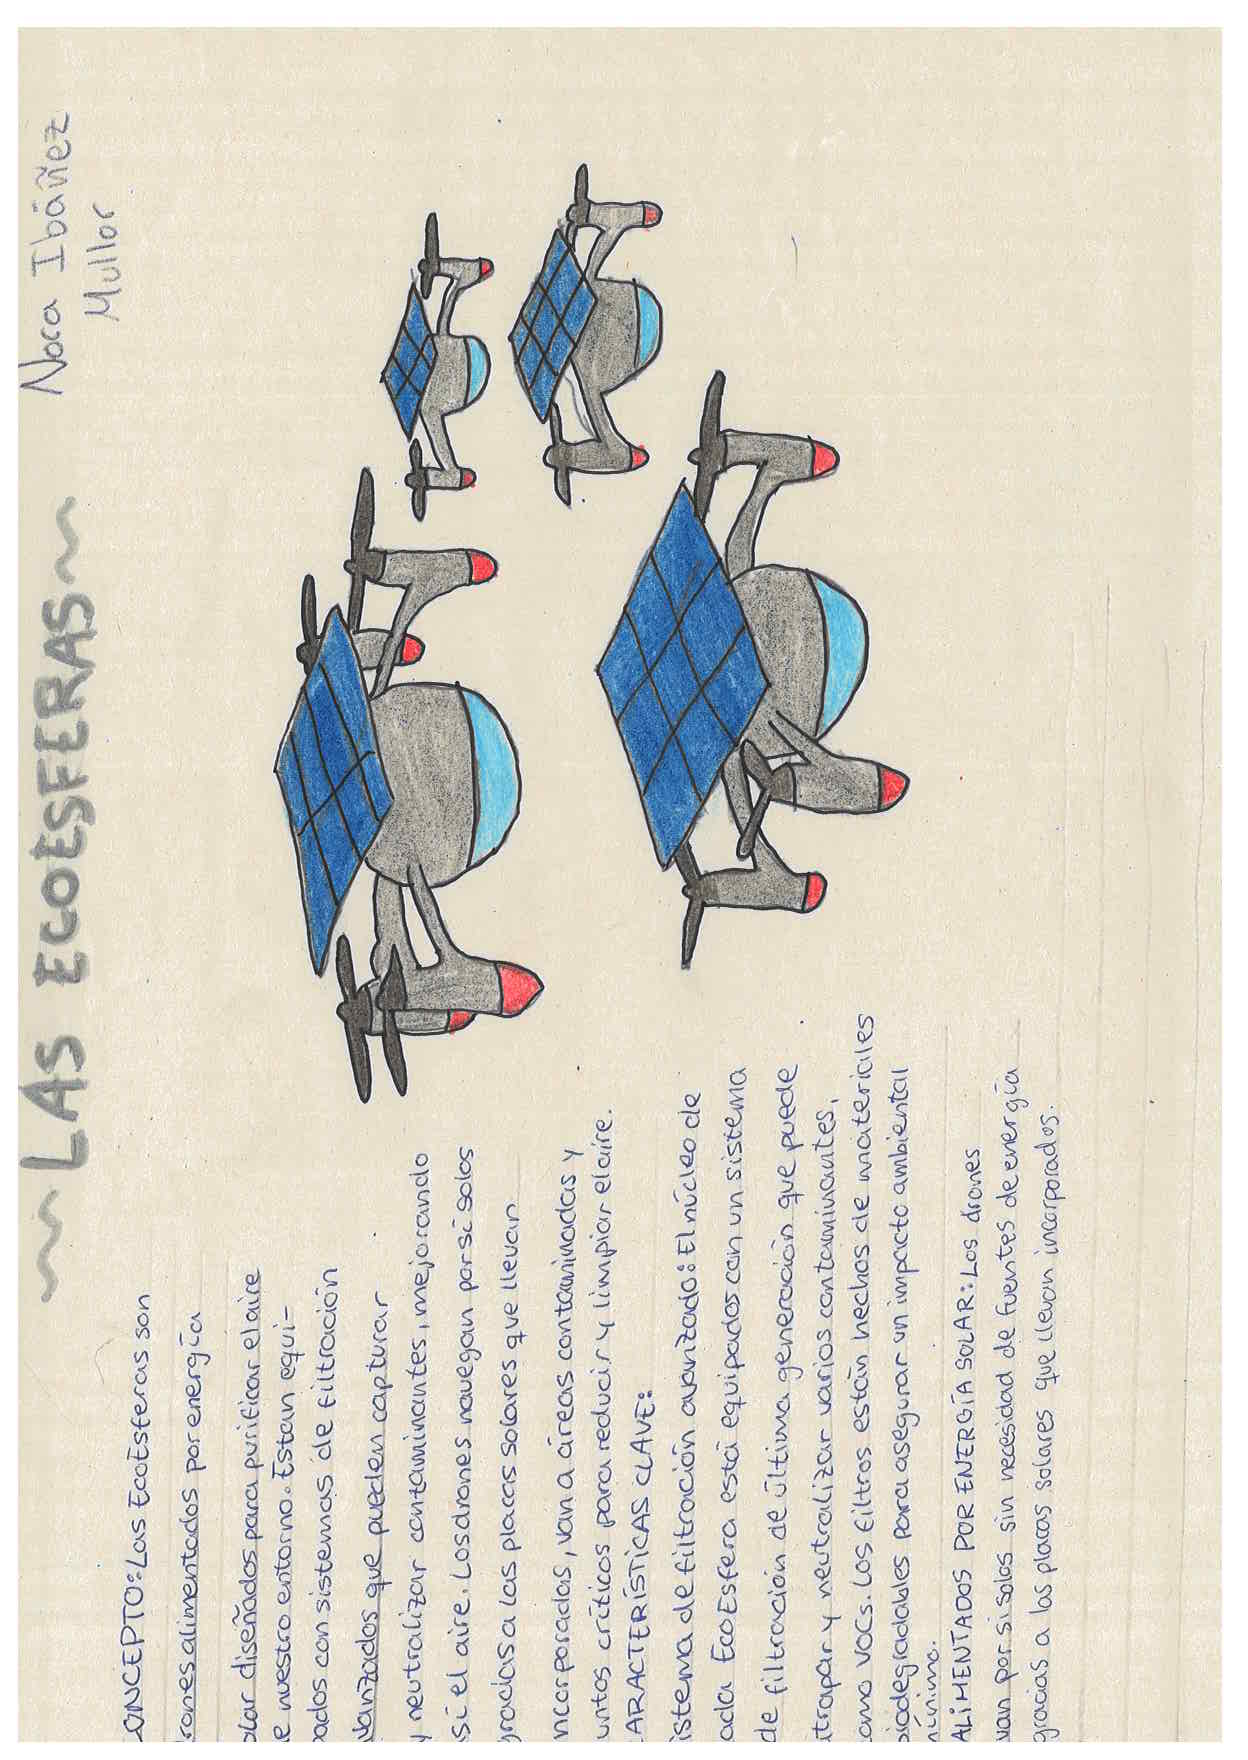 ~ LAS ECOESFERAS ~
Nora Ibáñez
Mullor
CONCEPTO: Las EcoEsferas son
drones alimentados por energía
olar diseñados para purificar el aire
e nuestro entorno. Estan equi-
pados con sistemas de filtración
vanzados que pueden capturar
y neutralizar contaminantes, mejorando
sí el aire. Los drones navegan por sí solos
gracias a las placas solares que llevan
ncorporadas, van a áreas contaminadas y
untos críticos para reducir y limpiar el aire.
ARACTERÍSTICAS CLAVE:
istema de filtración avanzado: El núcleo de
ada EcoEsfera está equipados con un sistema
de filtración de última generación que puede
atrapar y neutralizar varios contaminantes,
omo VOCs. Los filtros están hechos de materiales
biodegradables para asegurar un impacto ambiental
mínimo.
ALIMENTADOS POR ENERGÍA SOLAR: Los drones
van por si solos sin necesidad de fuentes de energía
gracias a las placas solares que llevan incorporados.